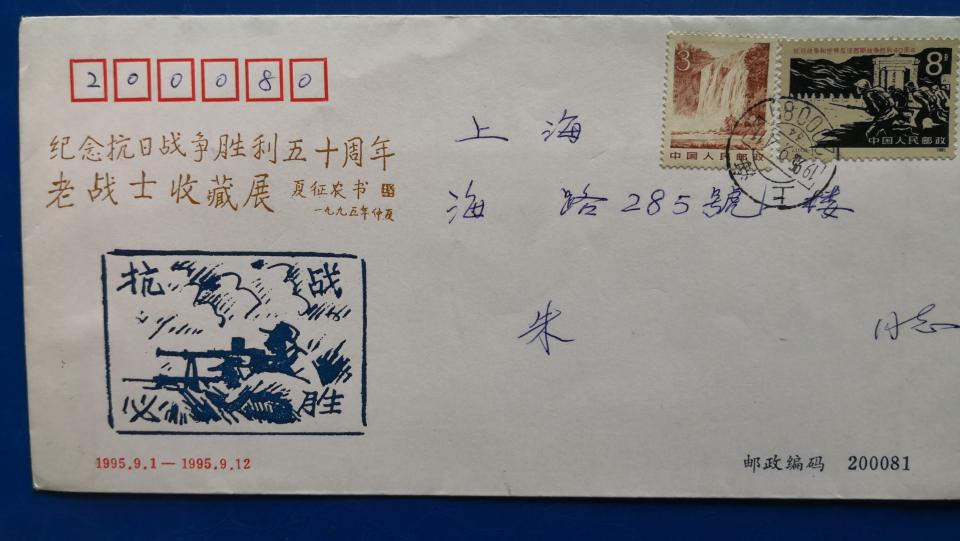 200080
3
中国人民邮政
抗日战争和世界反法西斯战争胜利40周年
8分
中国人民邮政
上海
海 路285號 楼
朱 同志
纪念抗日战争胜利五十周年
老战士收藏展 夏征农书
一九九五年仲夏
抗战
必胜
1995.9.1—1995.9.12
邮政编码 200081